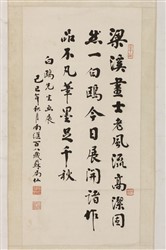 梁溪畫士老風流高潔同
然一白鷗今日展開諸作
品不凡筆墨足千秋
白鷗先生畫展
己巳年秋月南漢百八歲蘇局仙